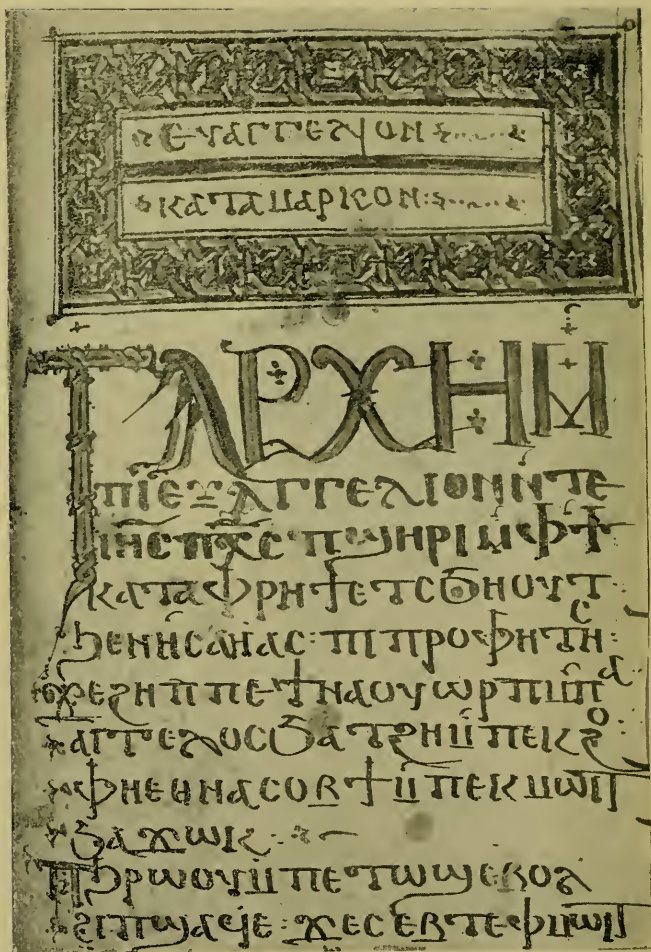 ⲉⲩⲁⲅⲅⲉⲗⲓⲟⲛ
ⲕⲁⲧⲁ ⲙⲁⲣⲕⲟⲛ:
ⲧⲁⲣⲭⲏ ⲙ̇
ⲡⲓⲉⲩⲁⲅⲅⲉⲗⲓⲟⲛ ⲛ̇ⲧⲉ
ⲓⲏ̅ⲥ̅ ⲡⲭ̅ⲥ̅ ⲡϣⲏⲣⲓ ⲙ̇ⲫϯ
ⲕⲁⲧⲁ ⲫⲣⲏϯ ⲉⲧⲥϧⲏⲟⲩⲧ
ϧⲉⲛ ⲏⲥⲁⲏⲁⲥ: ⲡⲓⲡⲣⲟⲫⲏⲧⲏⲥ:
ϫⲉ ϩⲏⲡⲡⲉ ϯⲛⲁⲟⲩⲱⲣⲡ ⲙ̇ⲡⲁ
ⲁⲅⲅⲉⲗⲟⲥ ϧⲁⲧϩⲏ ⲙ̇ⲡⲉⲕϩⲟ:
ⲫⲏⲉⲑⲛⲁⲥⲟⲃϯ ⲙ̇ⲡⲉⲕⲙⲱⲓⲧ
ϧⲁϫⲱⲕ:
ⲡϧⲣⲱⲟⲩ ⲙ̇ⲡⲉⲧⲱϣ ⲉⲃⲟⲗ
ϩⲓ ⲡϣⲁϥⲉ: ϫⲉ ⲥⲉⲃⲧⲉ ⲫⲙⲱⲓⲧ